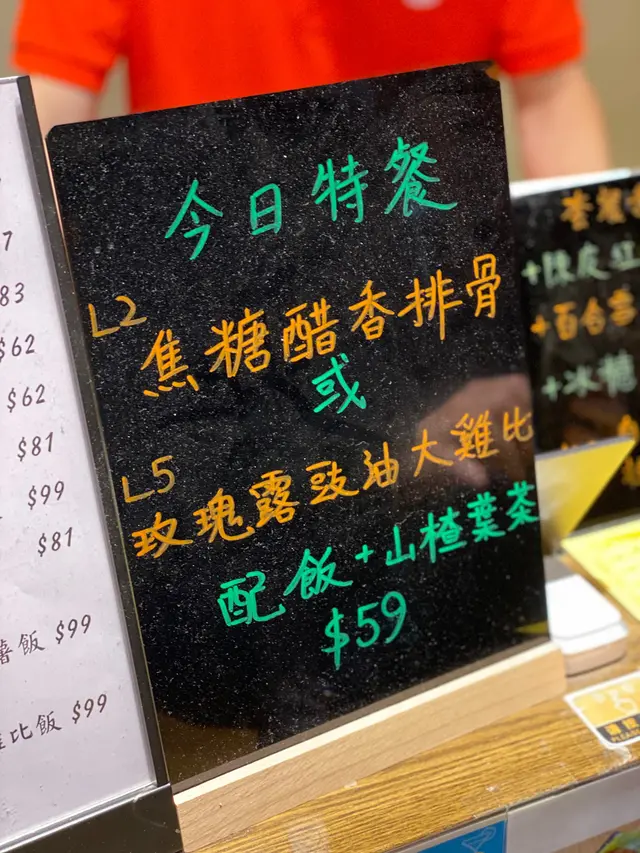 今日特餐
L2
焦糖醋香排骨
或
L5
玫瑰露豉油大雞比
配飯+山楂葉茶
$59
83
$62
$62
$81
$99
$81
飯 $99
比飯 $99
+陳皮紅
+百合
+冰糖